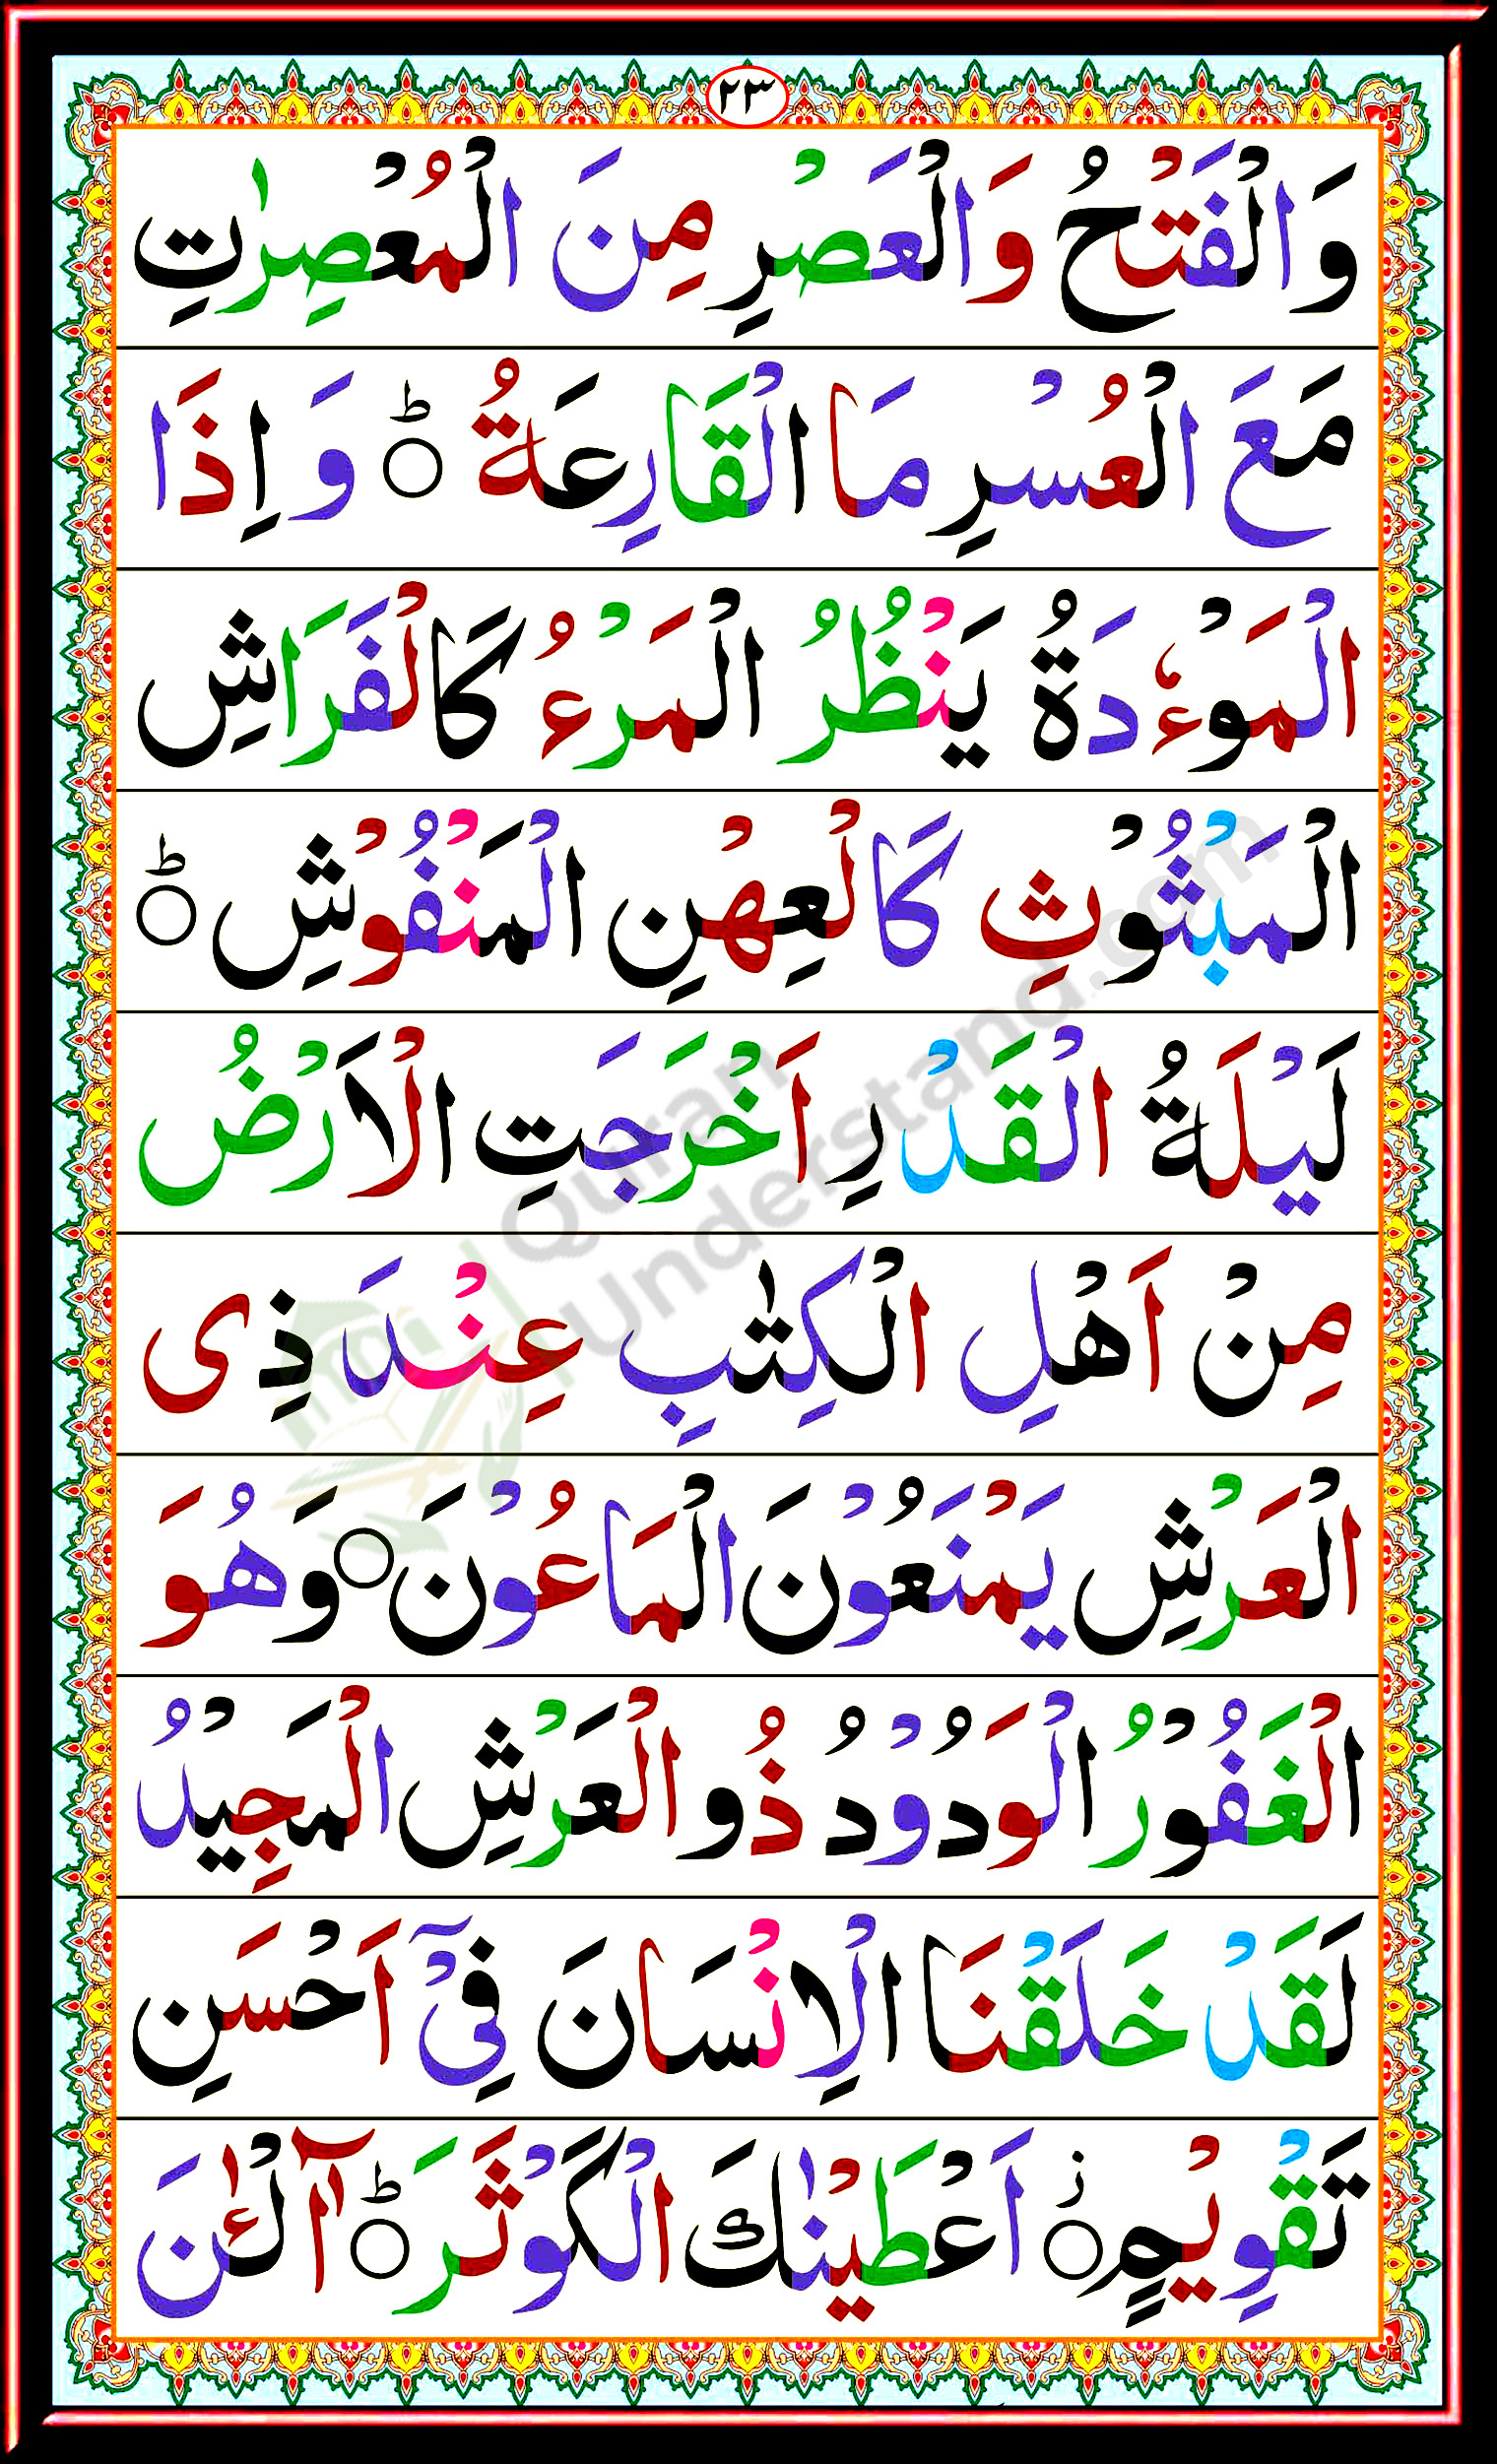 ٢٣
وَالْفَتْحُ وَالْعَصْرِ مِنَ الْمُعْصِرٰتِ
مَعَ الْعُسْرِ مَا الْقَارِعَةُ ؕ○ وَ اِذَا
الْمَوْءٗدَةُ يَنْظُرُ الْمَرْءُ كَالْفَرَاشِ
الْمَبْثُوْثِ كَالْعِهْنِ الْمَنْفُوْشِ ؕ○
لَيْلَةُ الْقَدْرِ اَخْرَجَتِ الْاَرْضُ
مِنْ اَهْلِ الْكِتٰبِ عِنْدَ ذِى
الْعَرْشِ يَمْنَعُوْنَ الْمَاعُوْنَ○ وَهُوَ
الْغَفُوْرُ الْوَدُوْدُ ذُو الْعَرْشِ الْمَجِيْدُ
لَقَدْ خَلَقْنَا الْاِنْسَانَ فِىْۤ اَحْسَنِ
تَقْوِيْمٍ○ؗ اَعْطَيْنٰكَ الْكَوْثَرَ ؕ○ آٰلْـٰٔنَ
Quran
Understand.com